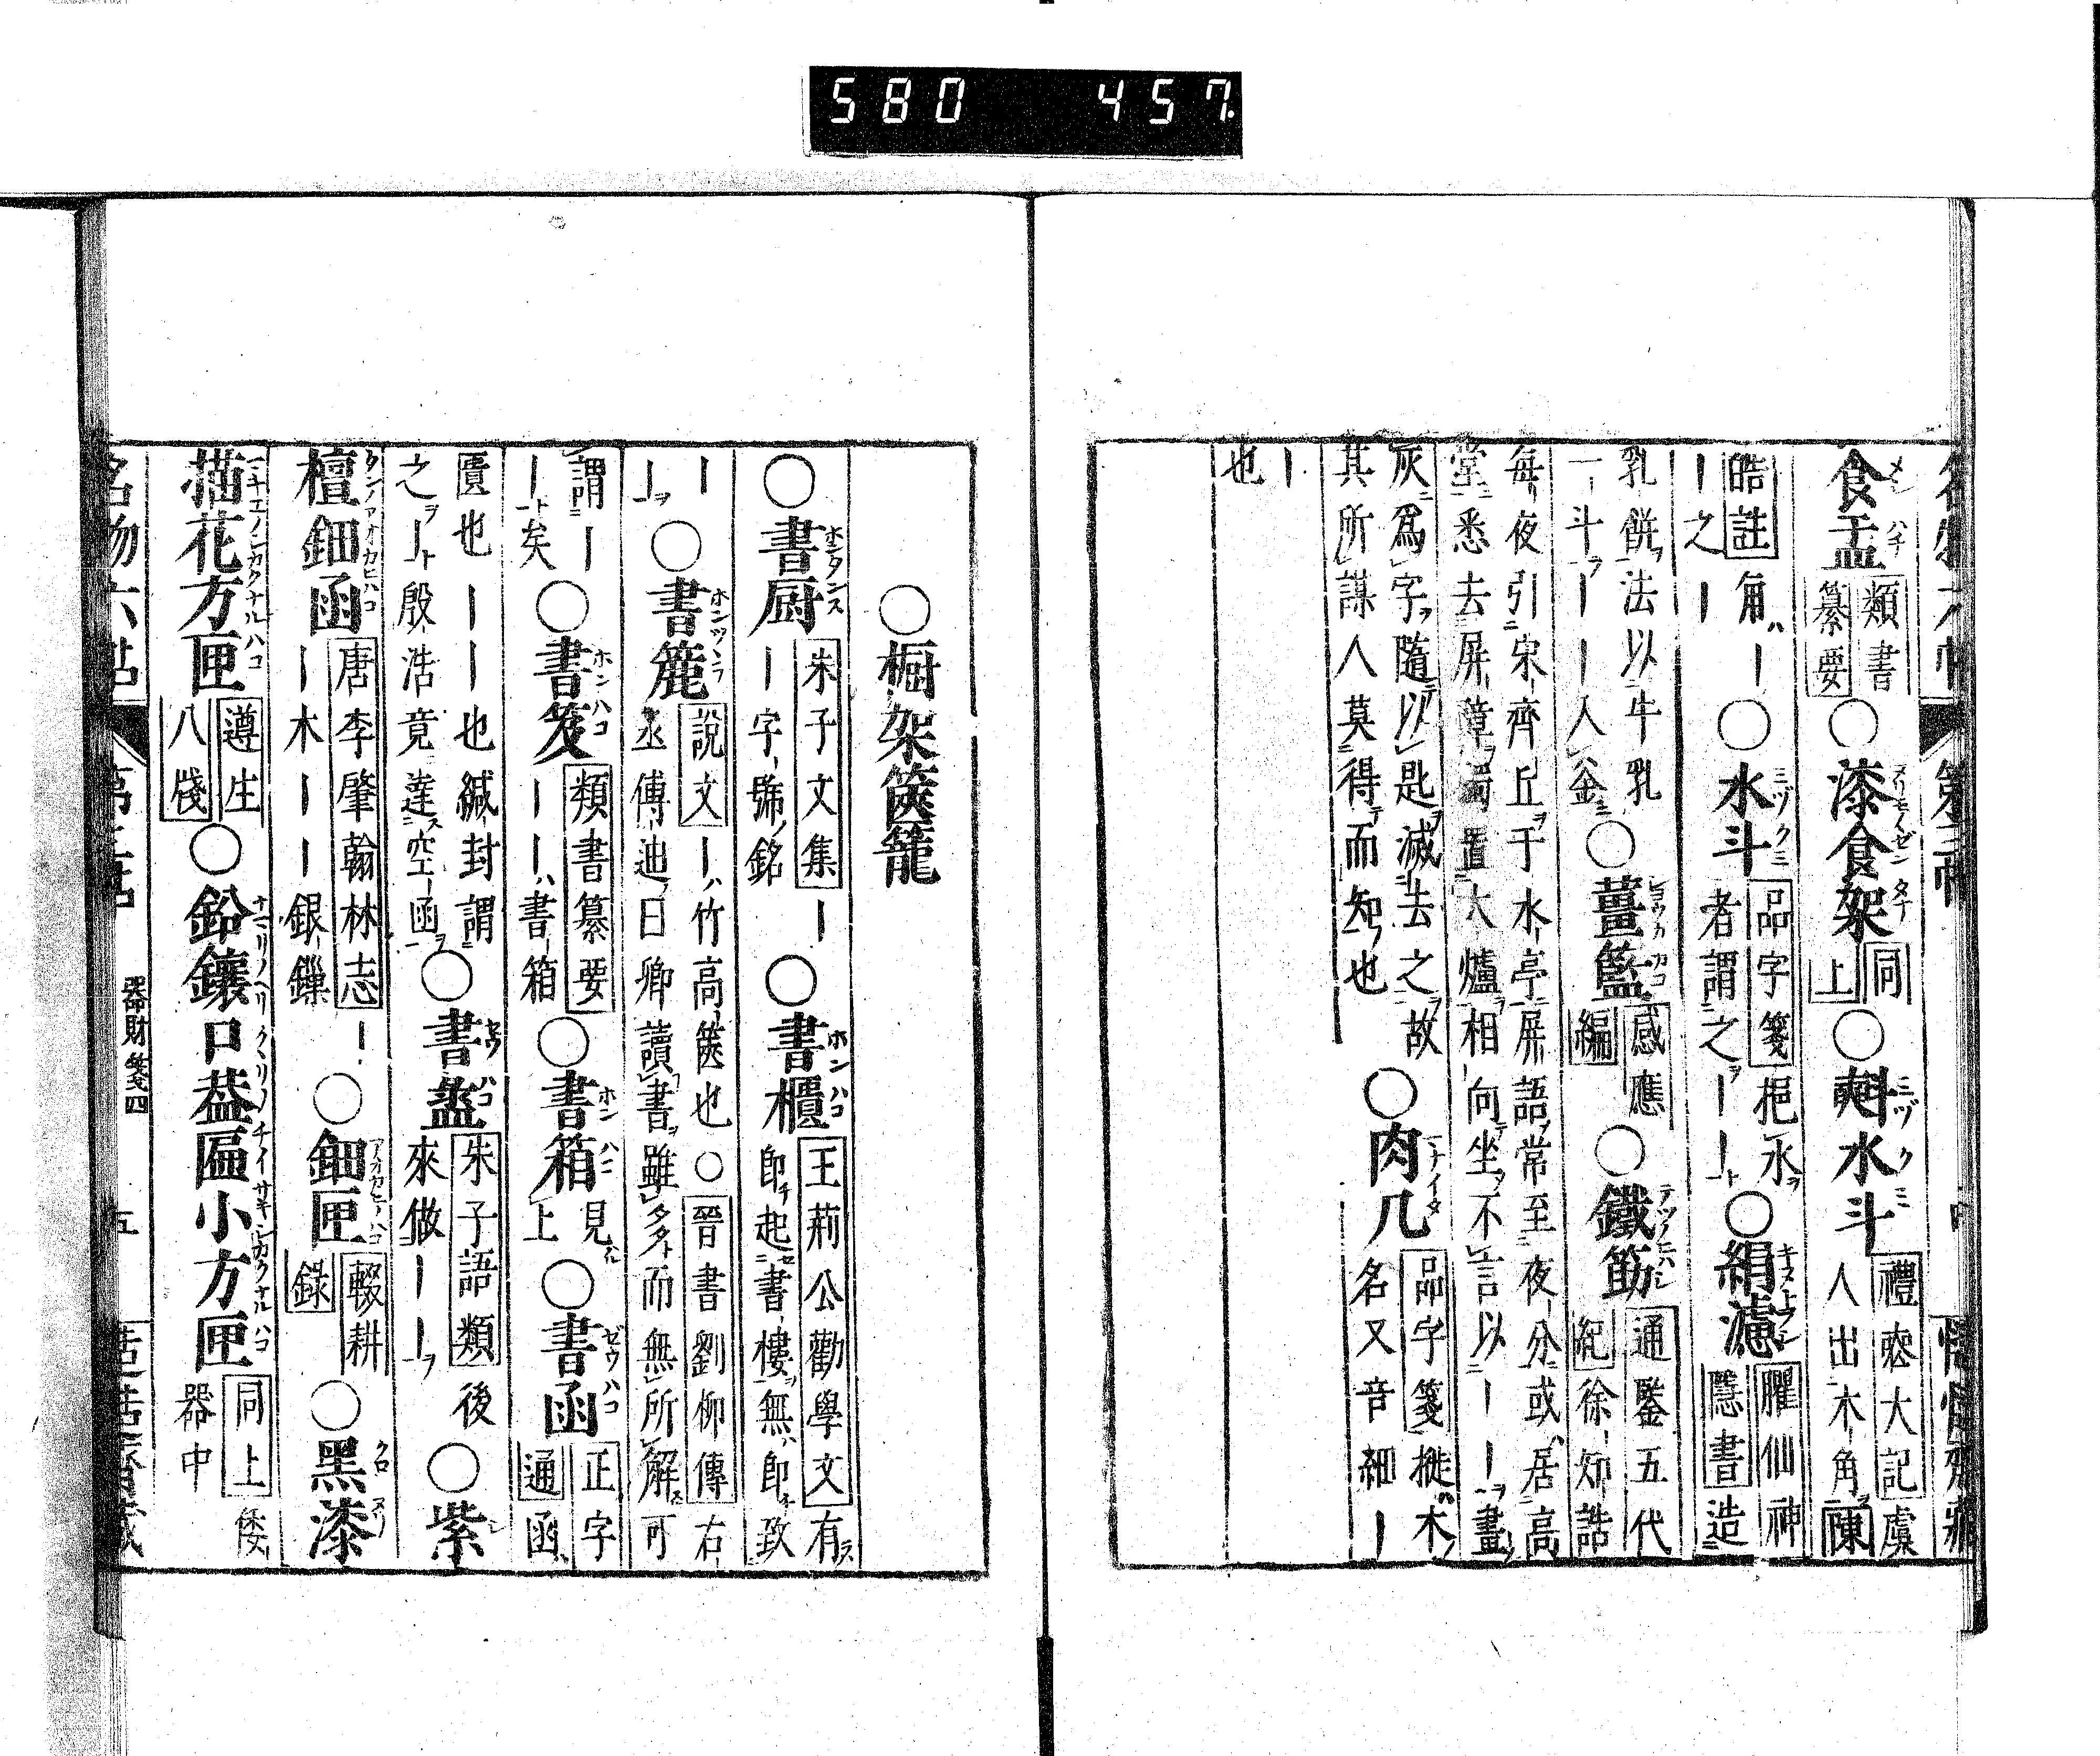 580 457
食盂 類書纂要 ○漆食架 同上 ○㪺水斗 禮喪大記 虞人出木角 陳
皓註 角ハ― ○水斗 品字箋 挹水者謂之―― ○絹濾 臞仙神隱書 造
乳餅法以牛乳一斗――入釜 ○薑籃 感應編 ○鐵筯 通鑒五代紀 徐知誥
每夜引宋齊丘于水亭屏語常至夜分或居高
堂悉去屏障獨置大爐相向坐不言以――畫
灰爲字隨以匙滅去之故
其所謀人莫得而知也 ○肉几 品字箋 樅木名又音細―
―
也
○櫥架篋籠
○書厨 朱子文集 ―― 字號銘 ○書櫃 王荊公勸學文 有即起書樓無即致
―― ○書簏 說文 ―ハ竹高篋也 ○晉書劉柳傳 右丞傅迪曰卿讀書雖多而無所解可
謂――矣 ○書笈 類書纂要 ―――ハ書箱 ○書箱 見上 ○書函 正字通 函
匱也――――也緘封謂之――殷浩竟達空函 ○書盝 朱子語類 後來做――― ○紫
檀鈿函 唐李肇翰林志 ―木――銀鏁 ○鈿匣 輟耕錄 ○黑漆
描花方匣 遵生八牋 ○鉛鑲口盝匾小方匣 同上 倭器中
名物六帖 第三帖 器財箋四 五